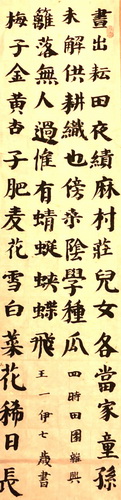 晝出耘田夜績麻村莊兒女各當家童孫
未解供耕織也傍桒陰學種瓜 四時田園雜興
梅子金黃杏子肥麦花雪白菜花稀日長
籬落無人過惟有蜻蜓蛺蝶飛 王一伊七歲書